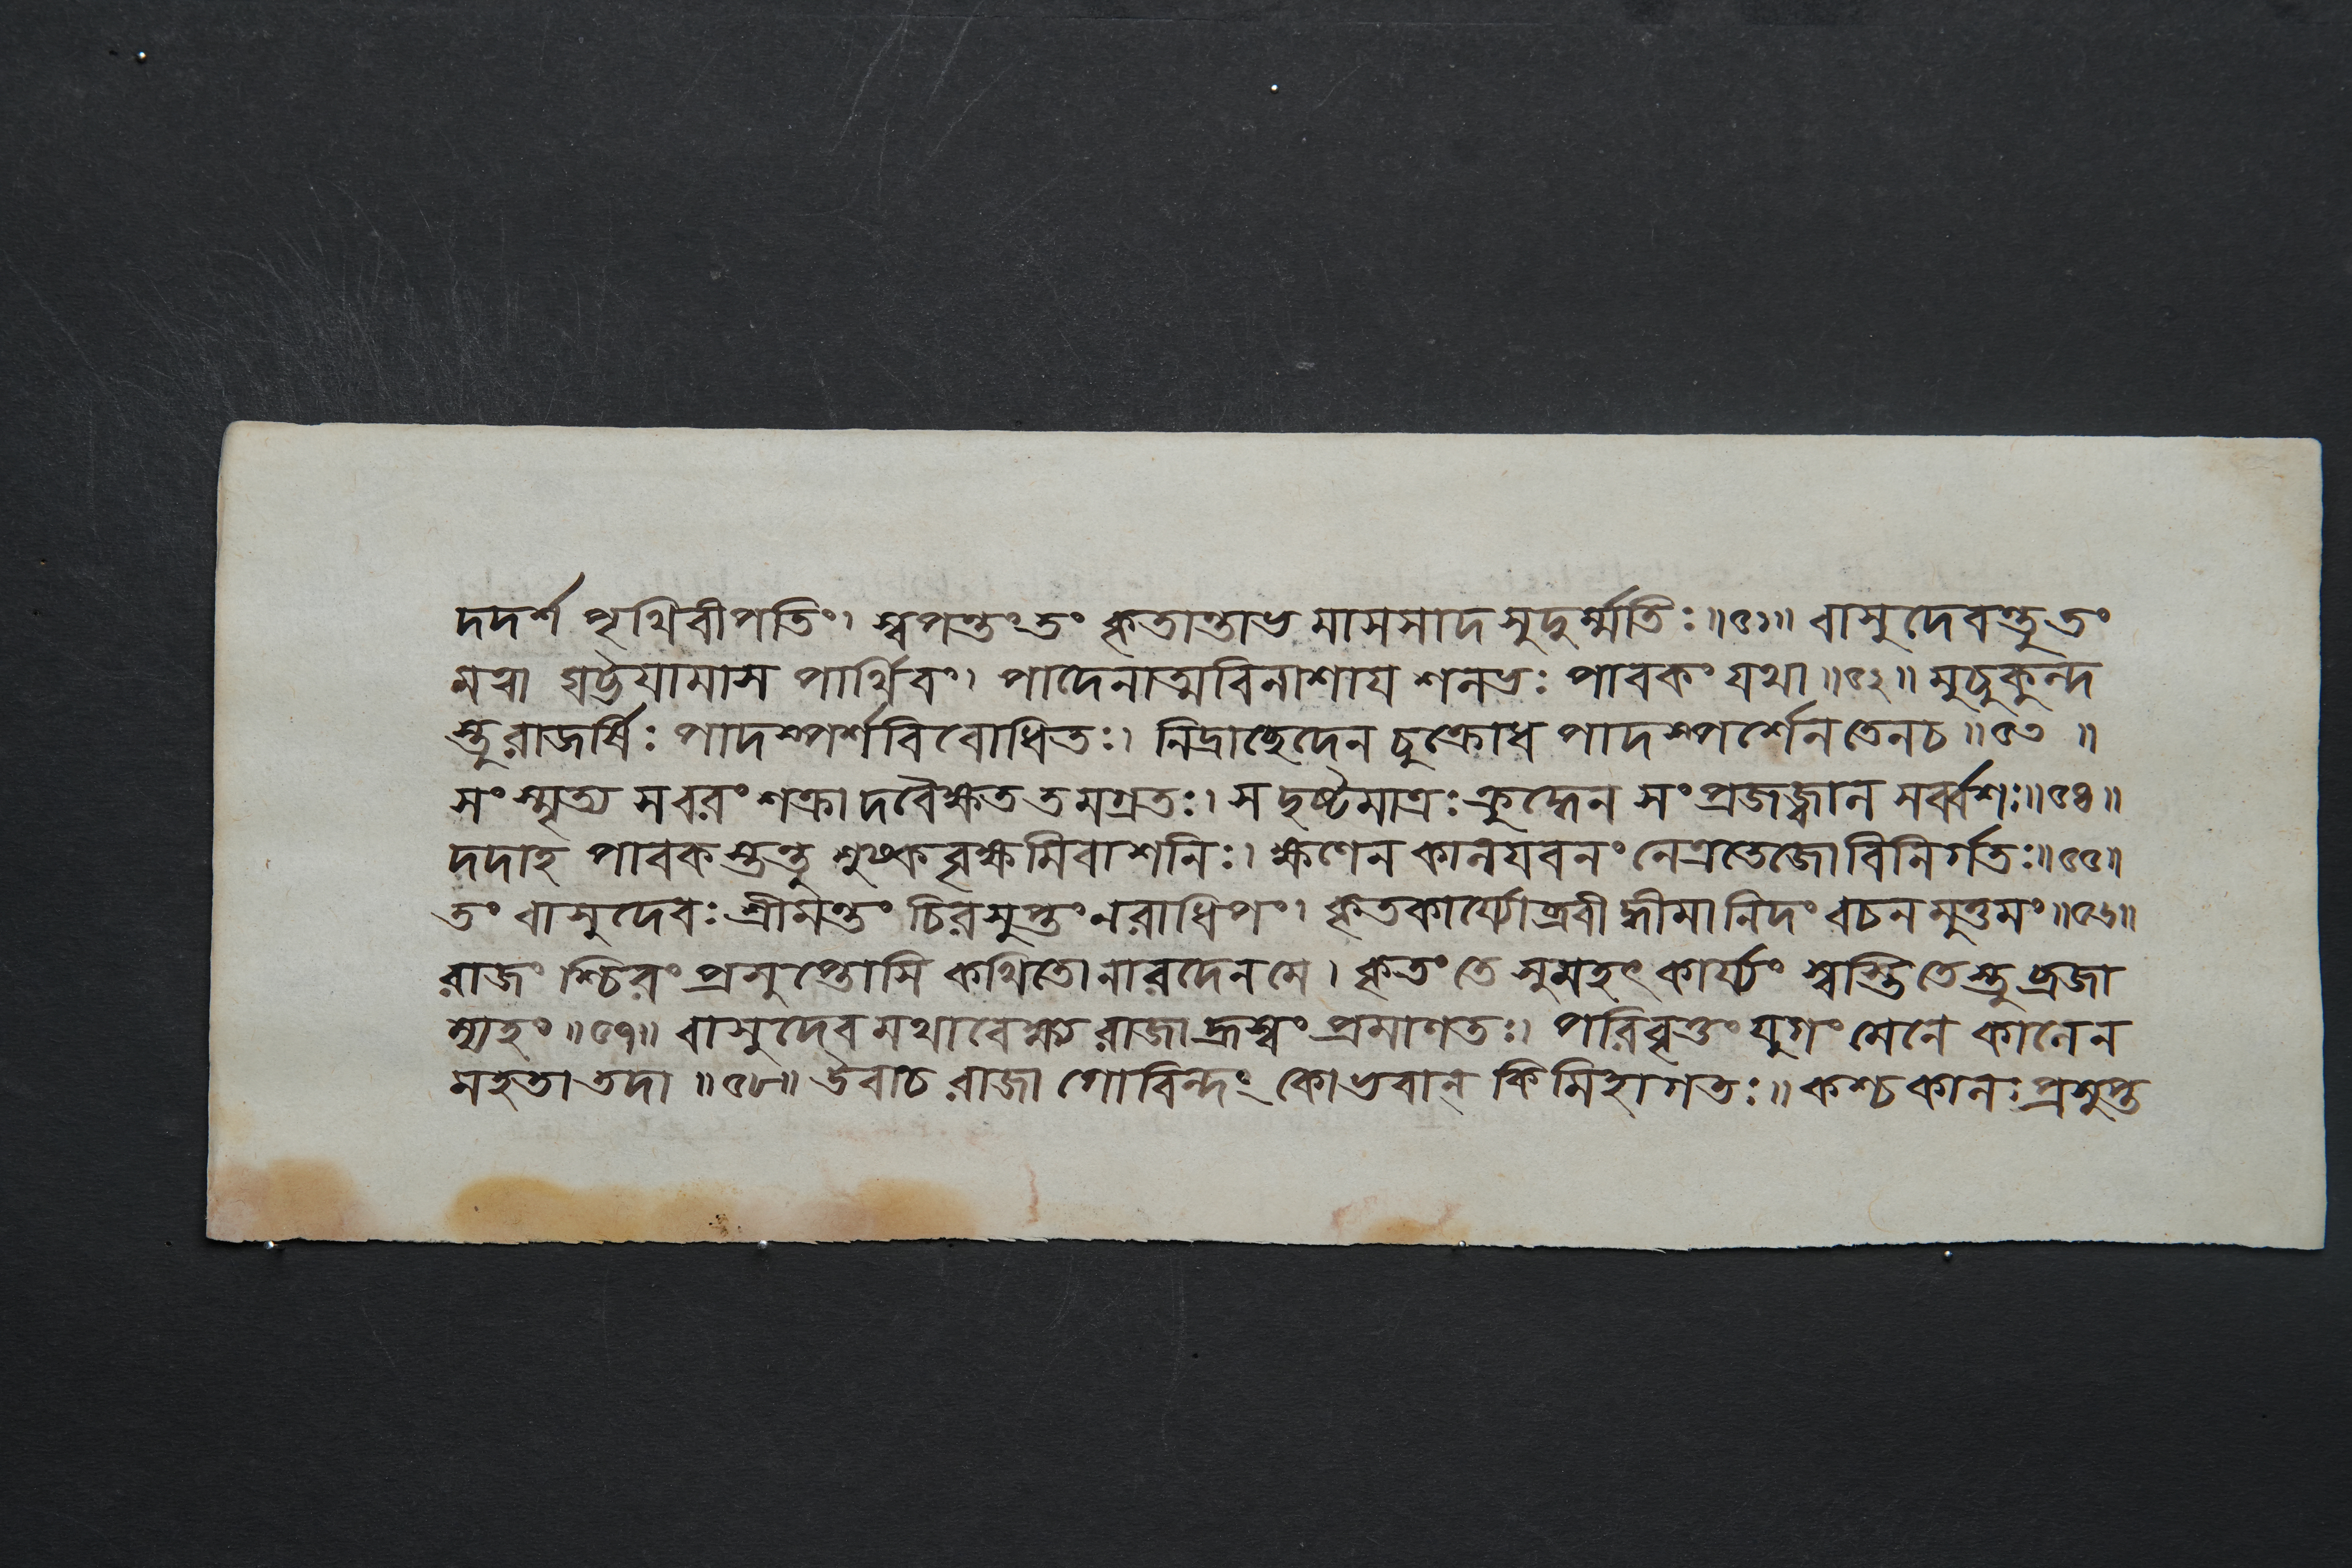 দদর্শ পৃথিবীপতিং৷ স্বপন্তং তং কৃতান্তাভ মাসসাদ সুদুর্ম্মতিঃ॥৫১॥ বাসুদেবস্তু তং
মত্বা ঘর্ট্টয়ামাস পার্থিবং৷ পাদেনাত্মবিনাশায শলভঃ পাবকং যথা॥৫২॥ মুচুকুন্দ
স্তু রাজর্ষিঃ পাদস্পর্শবিবোধিতঃ৷ নিদ্রাছেদেন চুক্রোধ পাদস্পর্শেন তেন চ॥৫৩॥
সংস্মৃত্য স বরং শক্রা দবৈক্ষত তমগ্রতঃ৷ স দৃষ্টমাত্রঃ ক্রুদ্ধেন সংপ্রজজ্বাল সর্ব্বশঃ॥৫৪॥
দদাহ পাবক স্তন্তু শুষ্কবৃক্ষমিবাশনিঃ৷ ক্ষণেন কালযবনং নেত্রতেজো বিনির্গতঃ॥৫৫॥
তং বাসুদেবঃ শ্রীমন্তং চিরসুপ্তং নরাধিপং৷ কৃতকার্য্যোব্রবী দ্ধীমা নিদং বচন মুত্তমং॥৫৬॥
রাজং শ্চিরং প্রসুপ্তোসি কথিতো নারদেন মে৷ কৃতং তে সুমহৎ কার্য্যং স্বস্তি তেস্তু ব্রজা
ম্যহং॥৫৭॥ বাসুদেব মথাবেক্ষ্য রাজা হ্রস্বং প্রমাণতঃ৷ পরিবৃত্তং যুগং মেনে কালেন
মহতা তদা॥৫৮॥ উবাচ রাজা গোবিন্দং কো ভবান্ কিমিহাগতঃ॥ কশ্চ কালঃ প্রসুপ্ত